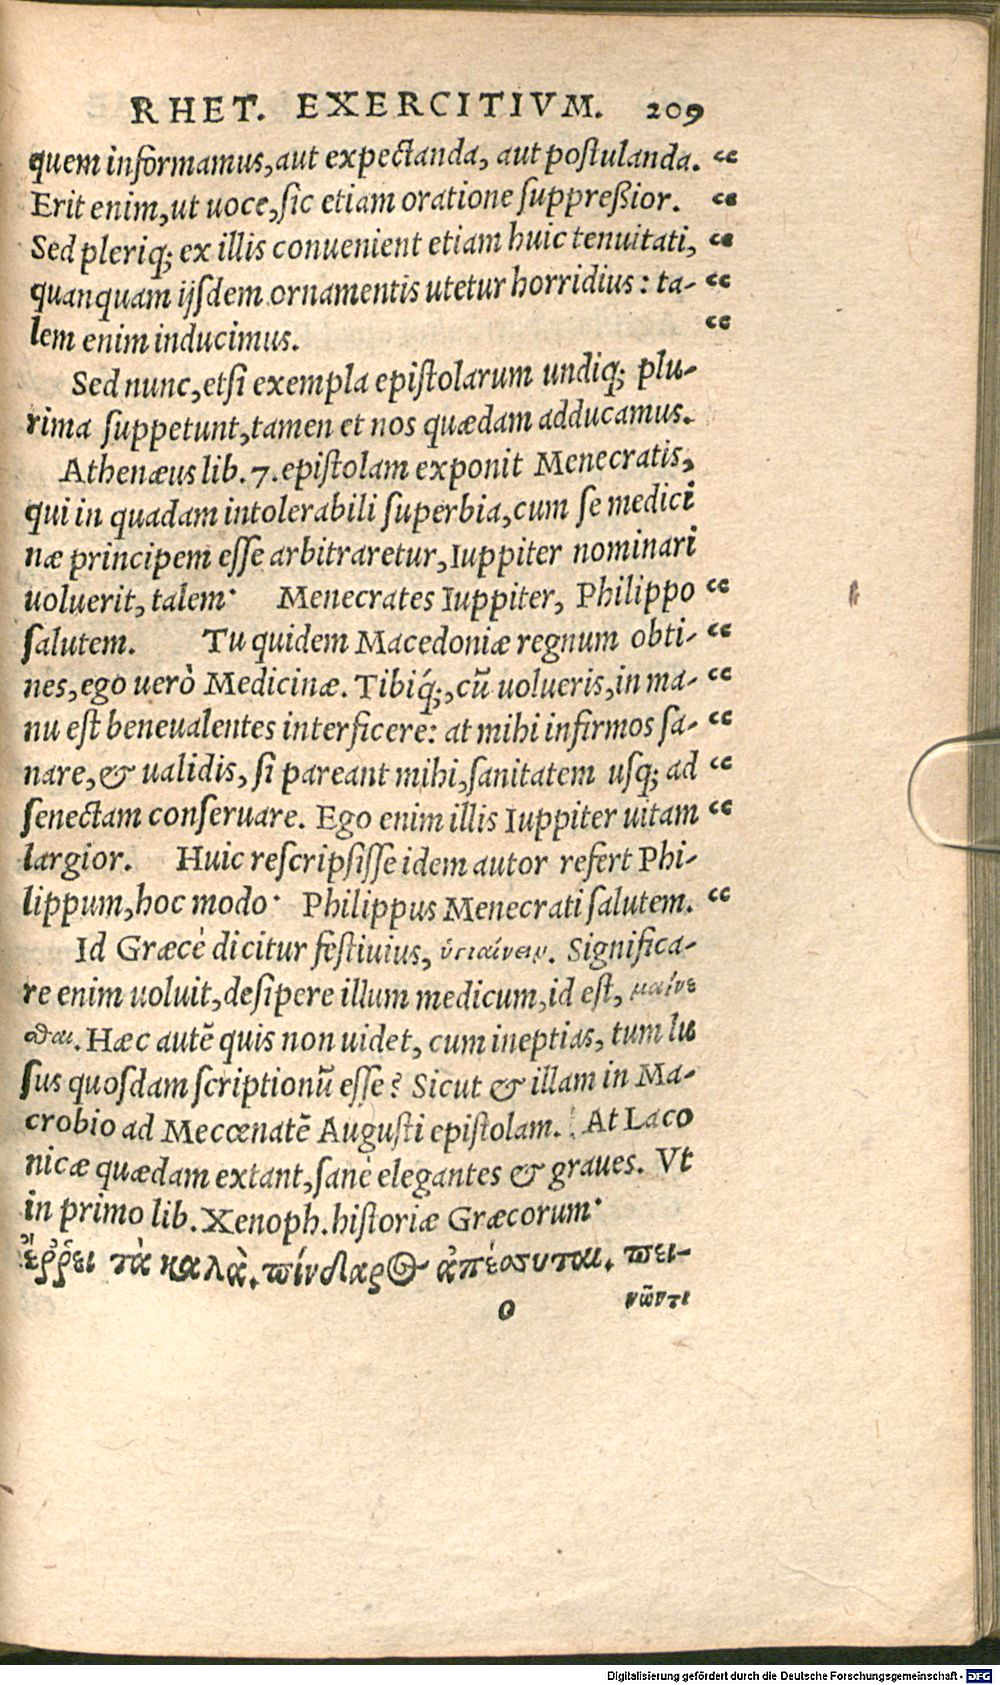 RHET. EXERCITIVM. 209
quem informamus, aut expectanda, aut postulanda. “
Erit enim, ut uoce, sic etiam oratione suppreßior. “
Sed pleriq; ex illis conuenient etiam huic tenuitati, “
quanquam ijsdem ornamentis utetur horridius: ta- “
lem enim inducimus. “
Sed nunc, etsi exempla epistolarum undiq; plu-
rima suppetunt, tamen et nos quædam adducamus.
Athenæus lib. 7. epistolam exponit Menecratis,
qui in quadam intolerabili superbia, cum se medici
næ principem esse arbitraretur, Iuppiter nominari
uoluerit, talem· Menecrates Iuppiter, Philippo “
salutem. Tu quidem Macedoniæ regnum obti- “
nes, ego uerò Medicinæ. Tibiq́;, cū uolueris, in ma- “
nu est beneualentes interficere: at mihi infirmos sa- “
nare, & ualidis, si pareant mihi, sanitatem usq; ad “
senectam conseruare. Ego enim illis Iuppiter uitam “
largior. Huic rescripsisse idem autor refert Phi-
lippum, hoc modo· Philippus Menecrati salutem. “
Id Græcè dicitur festiuius, ὑγιαίνειν. Significa-
re enim uoluit, desipere illum medicum, id est, μαίνε
σθαι. Hæc autē quis non uidet, cum ineptias, tum lu
sus quosdam scriptionū esse? Sicut & illam in Ma-
crobio ad Mecœnatē Augusti epistolam. At Laco
nicæ quædam extant, sanè elegantes & graues. Vt
in primo lib. Xenoph. historiæ Græcorum·
ἔῤῥει τὰ καλὰ. πίνδαρος ἀπέσσυται. πει-
o νῶντι
Digitalisierung gefördert durch die Deutsche Forschungsgemeinschaft - DFG